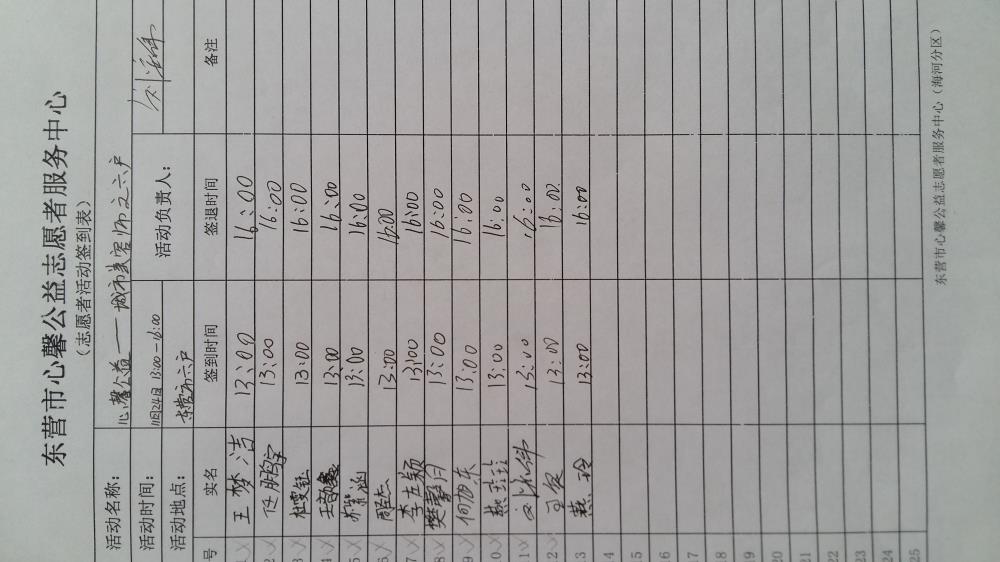 东营市心馨公益志愿者服务中心
（志愿者活动签到表）
活动名称： 心馨公益——城市美容师之六户
活动时间： 11月24日 13:00-16:00 活动负责人：
活动地点： 东营市六户
号 实名 签到时间 签退时间 备注
1 王梦洁 13:00 16:00
2 任鹏宇 13:00 16:00
3 桂雯钰 13:00 16:00
4 13:00 16:00
5 13:00 16:00
6 13:00 16:00
7 李左颖 13:00 16:00
8 樊馨月 13:00 16:00
9 13:00 16:00
10 燕珪珪 13:00 16:00
11 13:00 16:00
12 13:00 16:00
13 燕玲 13:00 16:00
14
15
16
17
18
19
20
21
22
23
24
25
东营市心馨公益志愿者服务中心（海河分区）